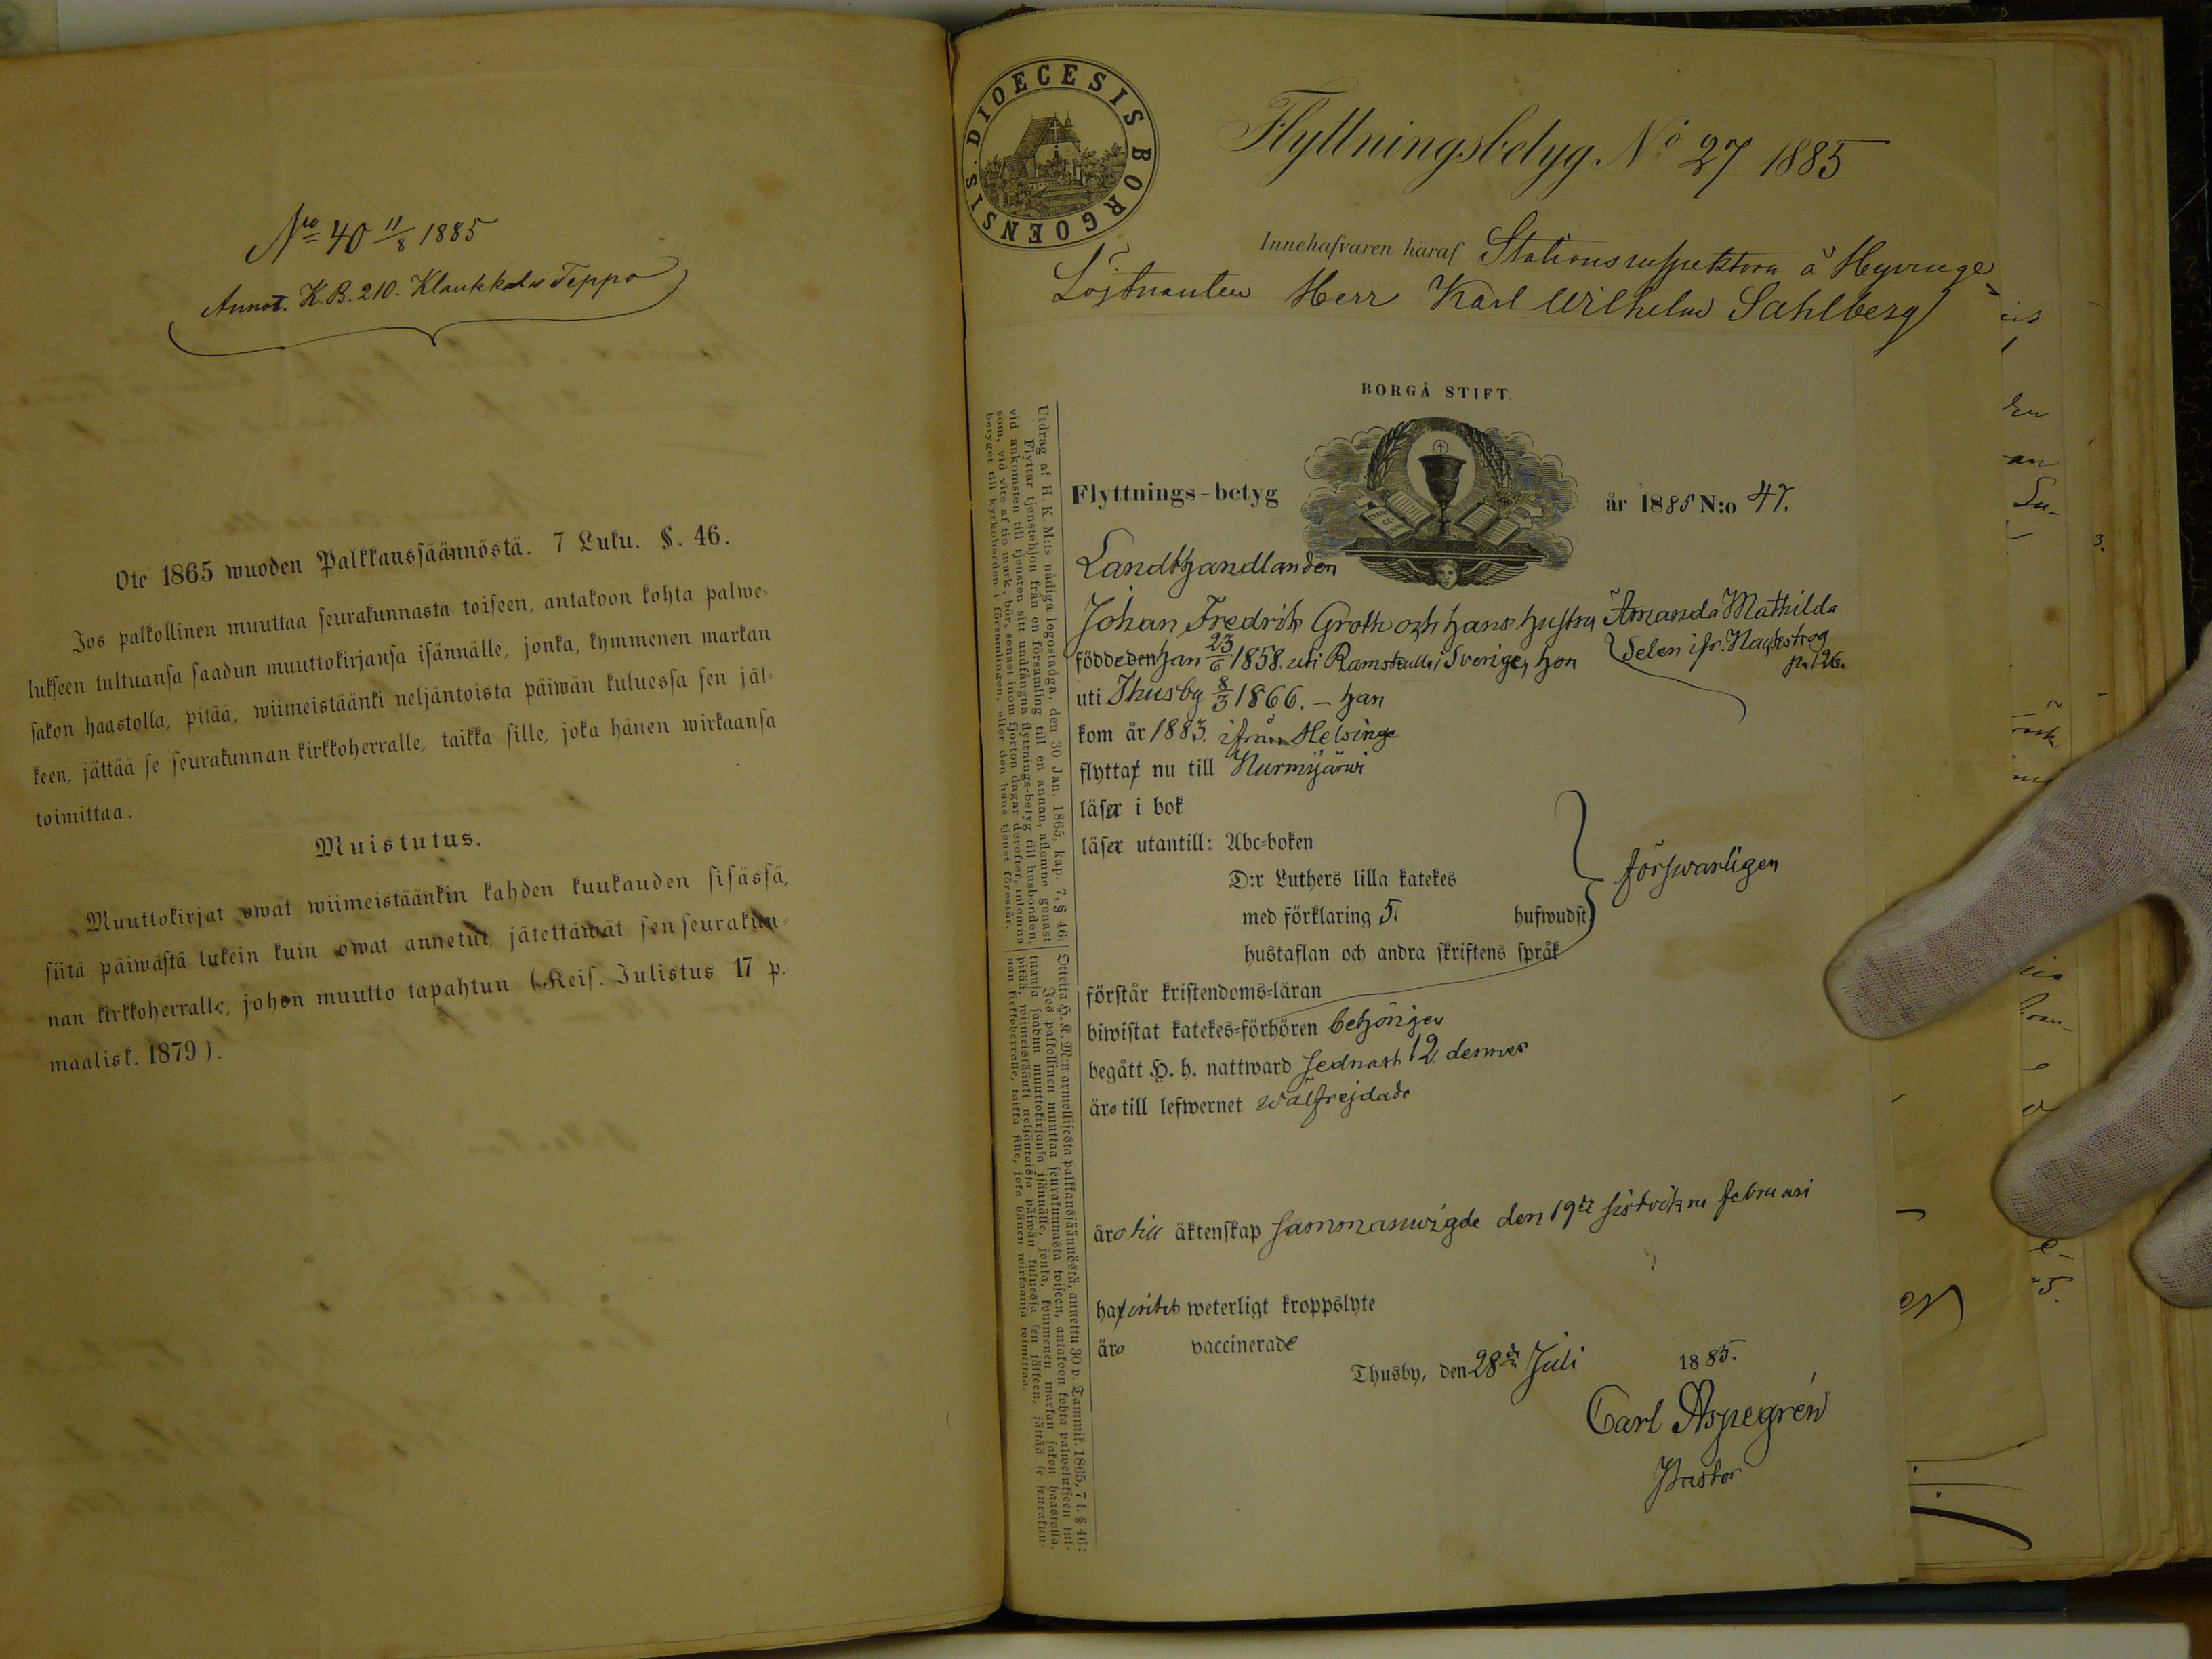 No 40 11/8 1885
Annot. K.B. 210. Klaukkala Teppo
Ote 1865 wuoden Palkkaussäännöstä. 7 Luku. §. 46.
Jos palkollinen muuttaa seurakunnasta toiseen, antakoon kohta palwe-
lukseen tultuansa saadun muuttokirjansa isännälle, jonka, kymmenen markan
sakon haastolla, pitää, wiimeistäänki neljäntoista päiwän kuluessa sen jäl-
keen, jättää se seurakunnan kirkkoherralle, taikka sille, joka hänen wirkaansa
toimittaa.
Muistutus.
Muuttokirjat owat wiimeistäänkin kahden kuukauden sisässä,
siitä päiwästä lukein kuin owat annetut, jätettäwät sen seurakun-
nan kirkkoherralle, johon muutto tapahtuu (Keis. Julistus 17 p.
maalisk. 1879).
DIOECESIS BORGOENSIS.
Flyttningsbetyg No 27 1885
Innehafvaren häraf Stationsinspektorn å Hyvinge
Löjtnanten Herr Karl Wilhelm Sahlberg
BORGÅ STIFT.
Flyttnings-betyg år 1885 N:o 47.
Landthandlanden
Johan Fredrik Groth och hans hustru Amanda Mathilda
Selen ifr.
p. 126.
födde den han 23/6 1858. uti Ramskulla i Sverige, hon
uti Thusby 8/3 1866. – han
kom år 1883. ifrån Helsinge
flytta nu till Nurmijärvi
läser i bok
läser utantill: Abc-boken
D:r Luthers lilla katekes
med förklaring 5. hufwudst
hustaflan och andra skriftens språk
försvarligen
förstår kristendoms-läran
biwistat katekes-förhören behörigen
begått H. h. nattward sednast 12 dennes
äro till lefwernet wälfrejdade
äro till äktenskap sammanwigde den 19de sistvikne februari
ha weterligt kroppslyte
äro vaccinerade
Thusby, den 28de Juli 1885.
Carl Aspegrén
Pastor
Utdrag af H. K. M:ts nådiga legostadga, den 30 Jan. 1865, kap. 7, § 46:
Flyttar tjenstehjon från en församling till en annan, aflemne genast
vid ankomsten till tjensten sitt undfångna flyttnings-betyg till husbonden,
som, vid vite af tio mark, bör, senast inom fjorton dagar derefter, inlemna
betyget till kyrkoherden i församlingen, eller den hans tjenst förestår.
Otteita H. K. M:n armollisesta palkkaussäännöstä, annettu 30 p. Tammik. 1865, 7 l. § 46:
Jos palkollinen muuttaa seurakunnasta toiseen, antakoon kohta palwelukseen tul-
tuansa saadun muuttokirjansa isännälle, jonka, kymmenen markan sakon haastolla,
pitää, wiimeistäänki neljäntoista päiwän kuluessa sen jälkeen, jättää se seurakun-
nan kirkkoherralle, taikka sille, joka hänen wirkaansa toimittaa.